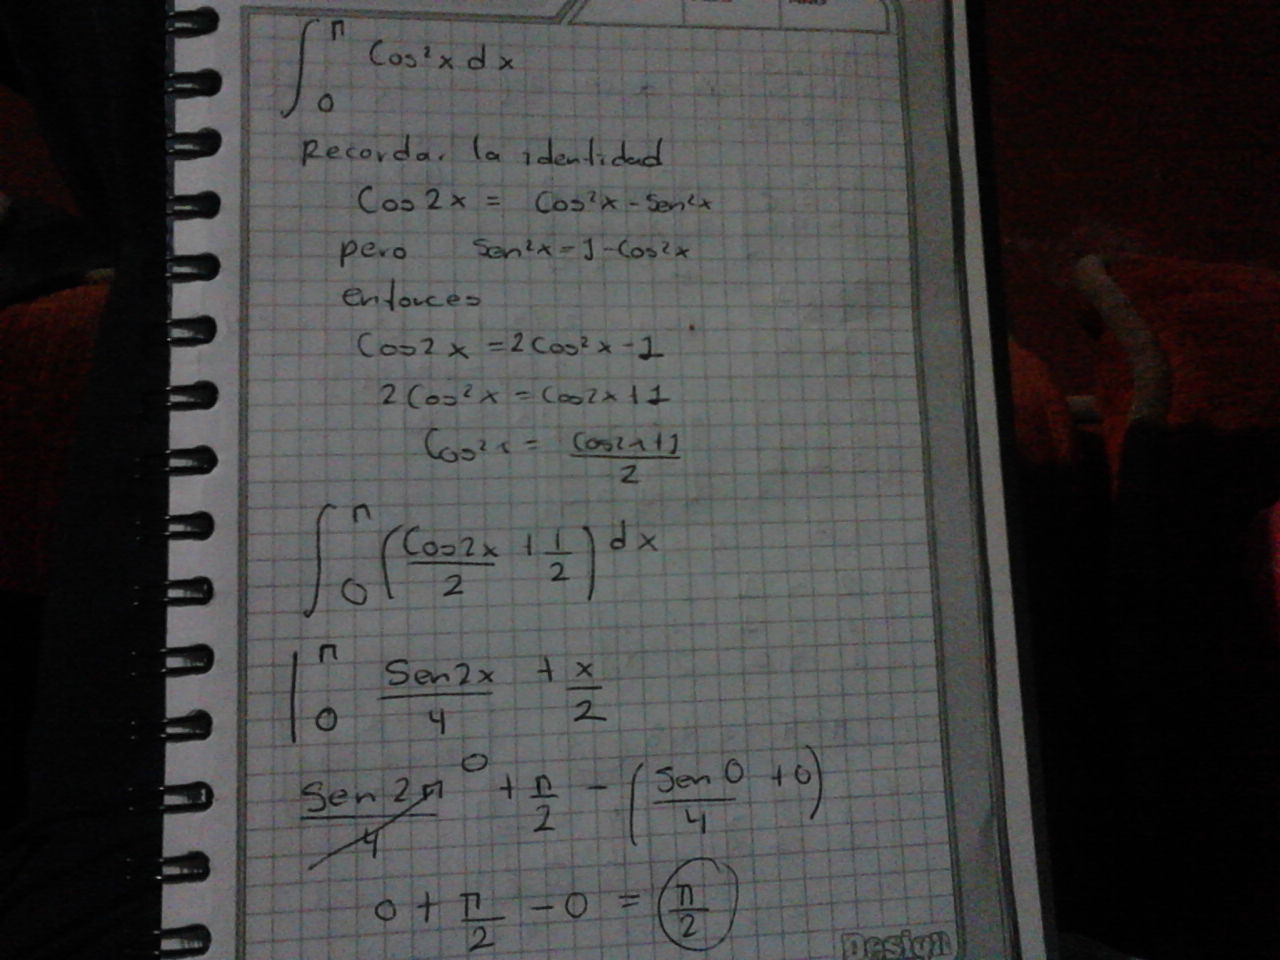 ∫₀^π Cos²x dx
Recorda. la identidad
Cos 2x = Cos²x - Sen²x
pero Sen²x = 1 - Cos²x
entonces
Cos2x = 2Cos²x - 1
2Cos²x = Cos2x + 1
Cos²x = (Cos2x + 1)/2
∫₀^π (Cos2x/2 + 1/2) dx
|₀^π Sen2x/4 + x/2
Sen 2π/4 ⁰ + π/2 - (Sen 0/4 + 0)
0 + π/2 - 0 = π/2
Design